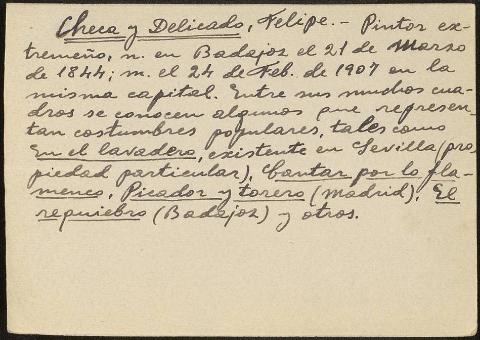 Checa y Delicado, Felipe.- Pintor ex-
tremeño, n. en Badajoz el 21 de Marzo
de 1844; m. el 24 de Feb. de 1907 en la
misma capital. Entre sus muchos cua-
dros se conocen algunos que represen-
tan costumbres populares, tales como
En el lavadero, existente en Sevilla (pro
piedad particular), Cantar por lo fla-
menco, Picador y torero (Madrid), El
requiebro (Badajoz) y otros.